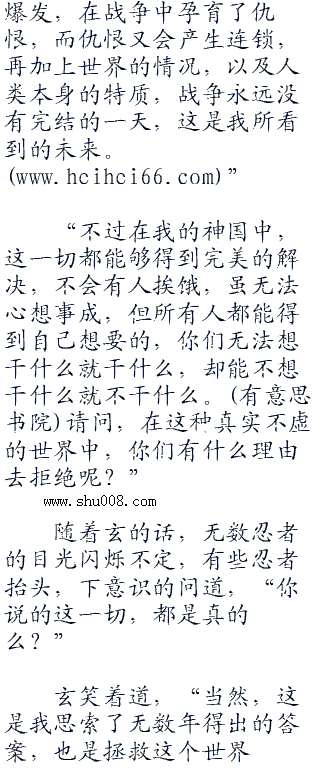 爆发，在战争中孕育了仇
恨，而仇恨又会产生连锁，
再加上世界的情况，以及人
类本身的特质，战争永远没
有完结的一天，这是我所看
到的未来。
(www.hcihci66.com)”
“不过在我的神国中，
这一切都能够得到完美的解
决，不会有人挨饿，虽无法
心想事成，但所有人都能得
到自己想要的，你们无法想
干什么就干什么，却能不想
干什么就不干什么。(有意思
书院)请问，在这种真实不虚
的世界中，你们有什么理由
去拒绝呢？”
www.shu008.com
随着玄的话，无数忍者
的目光闪烁不定，有些忍者
抬头，下意识的问道，“你
说的这一切，都是真的
么？”
玄笑着道，“当然，这
是我思索了无数年得出的答
案，也是拯救这个世界